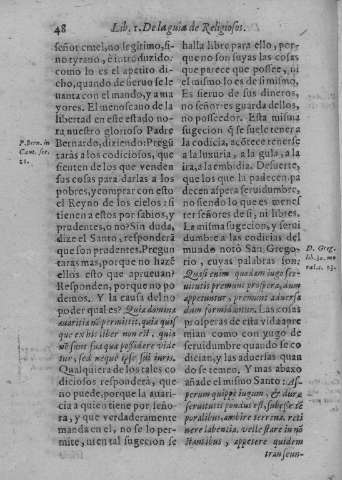 48
Lib. 1. De la guia de Religiosos.
señor cruel, no legitimo, si-
no tyrano, è introduzido:
como lo es el apetito di-
cho, quando de sieruo se le-
uanta con el mando, y a ma
yores. El menoscauo de la
libertad en este estado no-
ta nuestro glorioso Padre
Bernardo, diziendo: Pregũ
taràs a los codiciosos, que
sienten de los que venden
sus cosas para darlas a los
pobres, y comprar con esto
el Reyno de los cielos: si
tienen a estos por sabios, y
prudentes, o no? Sin duda,
dize el Santo, responderà
que son prudentes. Pregun
taras mas, porque no hazẽ
ellos esto que aprueuan?
Responden, porque no po
demos. Y la causa del no
poder qual es? Quia domina
auaritia nõ permittit, quia quis
que ex his liber non est: quia
nõ sunt sua quæ possidere vide
tur, sed neque ipse sui iuris.
Qualquiera de los tales co
diciosos responderà, que
no puede, porque la auari-
cia a quien tiene por seño
ra, y que verdaderamente
manda en el, no se lo per-
mite, ni en tal sugecion se
P. Bern. in
Cant. ser.
21.
halla libre para ello, por-
que no son suyas las cosas
que parece que possee, ni
el mismo lo es de si mismo,
Es sieruo de sus dineros,
no señor: es guarda dellos,
no posseedor. Esta misma
sugecion q̃ se suele tener a
la codicia, acõtece tenerse
a la luxuria, a la gula, a la
ira, a la embidia. Desuerte,
que los que la padecen, pa
decen aspera seruidumbre,
no siendo lo que es menes
ter señores de si, ni libres.
La misma sugecion, y serui
dumbre a las codicias del
mundo notò San Grego-
rio, cuyas palabras son:
Quasi enim quadam iugo ser-
uitutis premunt prospera, dum
appetuntur, premunt aduersa
dum formidantur. Las cosas
prosperas de esta vida apre
mian como con yugo de
seruidumbre quando se co
dician, y las aduersas quan
do se temen. Y mas abaxo
añade el mismo Santo: As-
perum quippe iugum, & duræ
seruitutis pondus est, subesse tẽ
poralibus, ambire terrena, reti
nere labentia, velle stare in nõ
stantibus, appetere quidem
D. Greg.
lib. 30. mo
ral. c. 13.
transeun-